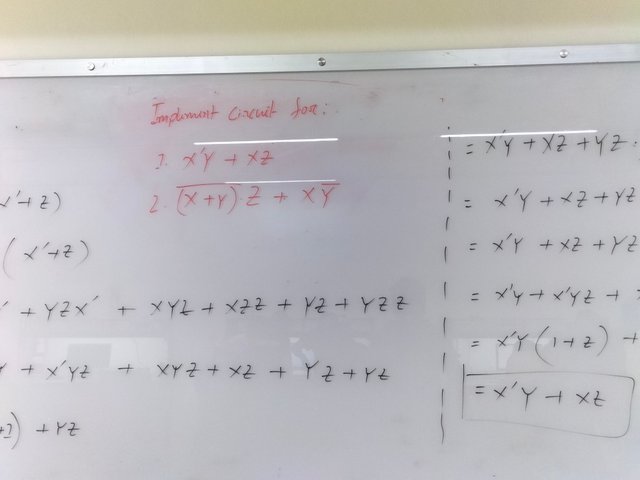 Implement Circuit for:
1. X'Y + XZ
2. (X+Y)·Z + XY
X'+Z)
( X'+Z)
' + YZX' + XYZ + XZZ + YZ + YZZ
Y + X'YZ + XYZ + XZ + YZ + YZ
) + YZ
= X'Y + XZ + YZ.
= X'Y + XZ + YZ
= X'Y + XZ + YZ
= X'Y + X'YZ +
= X'Y (1+Z) +
= X'Y + XZ